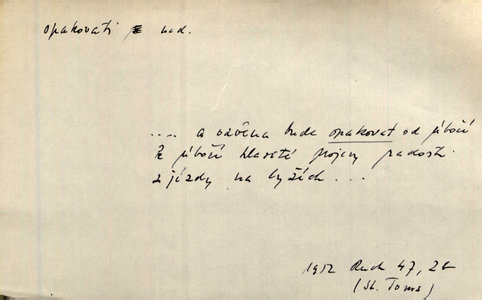 opakovati ned.
.... a ozvěna bude opakovat od úbočí
k úbočí hlasité projevy radosti
z jízdy na lyžích ...
1952 Ruch 47, 26
(St. Toms)